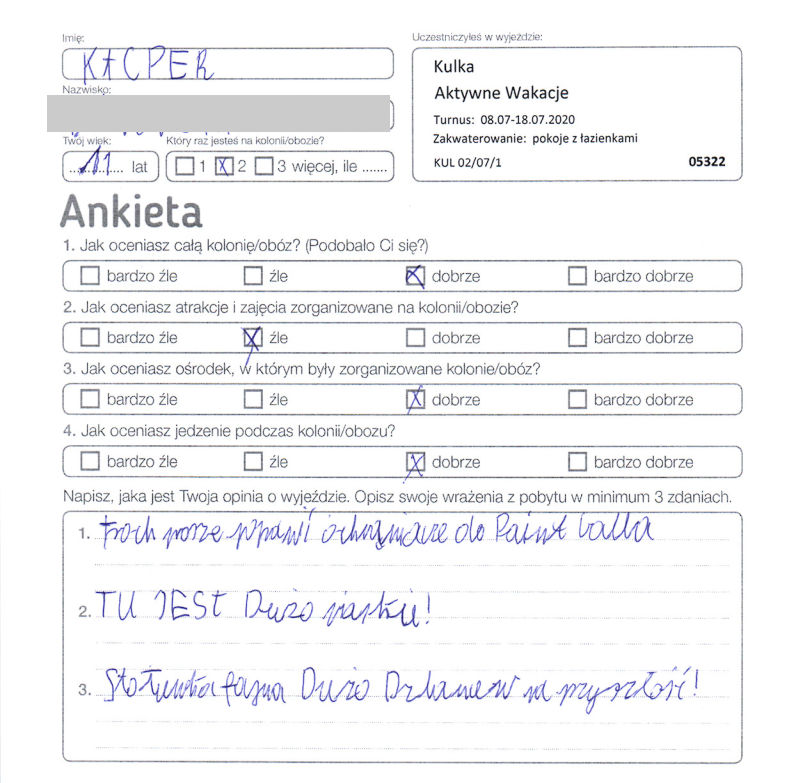 Imię:
KACPER
Nazwisko:
Twój wiek:
11 lat
Który raz jesteś na kolonii/obozie?
1 X 2 3 więcej, ile .......
Uczestniczyłeś w wyjeździe:
Kulka
Aktywne Wakacje
Turnus: 08.07-18.07.2020
Zakwaterowanie: pokoje z łazienkami
KUL 02/07/1 05322
Ankieta
1. Jak oceniasz całą kolonię/obóz? (Podobało Ci się?)
bardzo źle źle X dobrze bardzo dobrze
2. Jak oceniasz atrakcje i zajęcia zorganizowane na kolonii/obozie?
bardzo źle X źle dobrze bardzo dobrze
3. Jak oceniasz ośrodek, w którym były zorganizowane kolonie/obóz?
bardzo źle źle X dobrze bardzo dobrze
4. Jak oceniasz jedzenie podczas kolonii/obozu?
bardzo źle źle X dobrze bardzo dobrze
Napisz, jaka jest Twoja opinia o wyjeździe. Opisz swoje wrażenia z pobytu w minimum 3 zdaniach.
1. troch ochraniacze do Paint balla
2. TU JEST Dużo
3. Stołówka fajna Dużo na przyszłość!